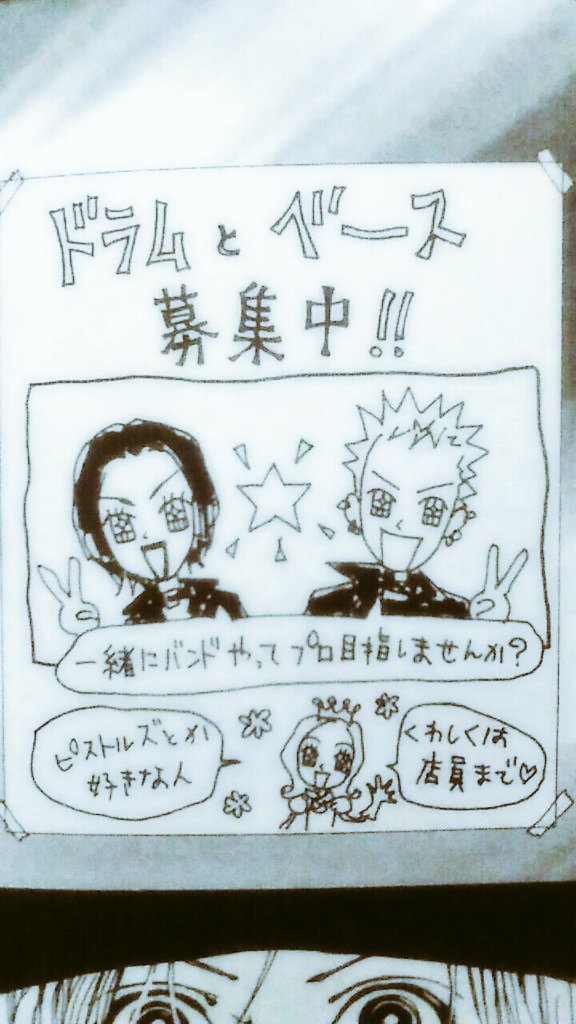 ドラムとベース
募集中!!
一緒にバンドやってプロ目指しませんか?
ピストルズとか
好きな人
くわしくは
店員まで♡